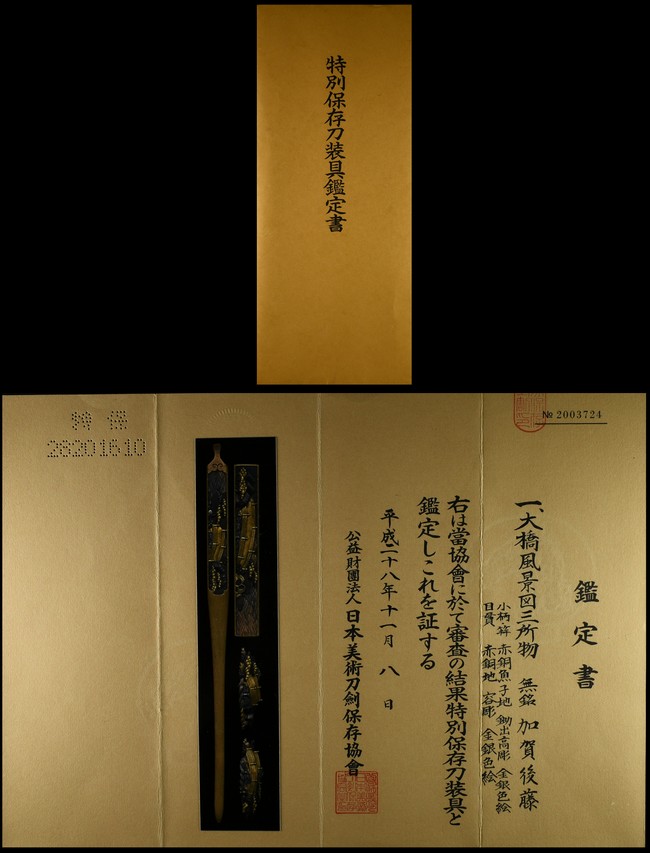 特別保存刀装具鑑定書
特 保
28201610
№ 2003724
鑑定書
一、大橋風景図三所物 無銘 加賀後藤
小柄笄 赤銅魚子地 鋤出高彫 金銀色絵
目貫 赤銅地 容彫 金銀色絵
右は當協會に於て審査の結果特別保存刀装具と
鑑定しこれを証する
平成二十八年十一月 八 日
公益財團法人 日本美術刀劍保存協會